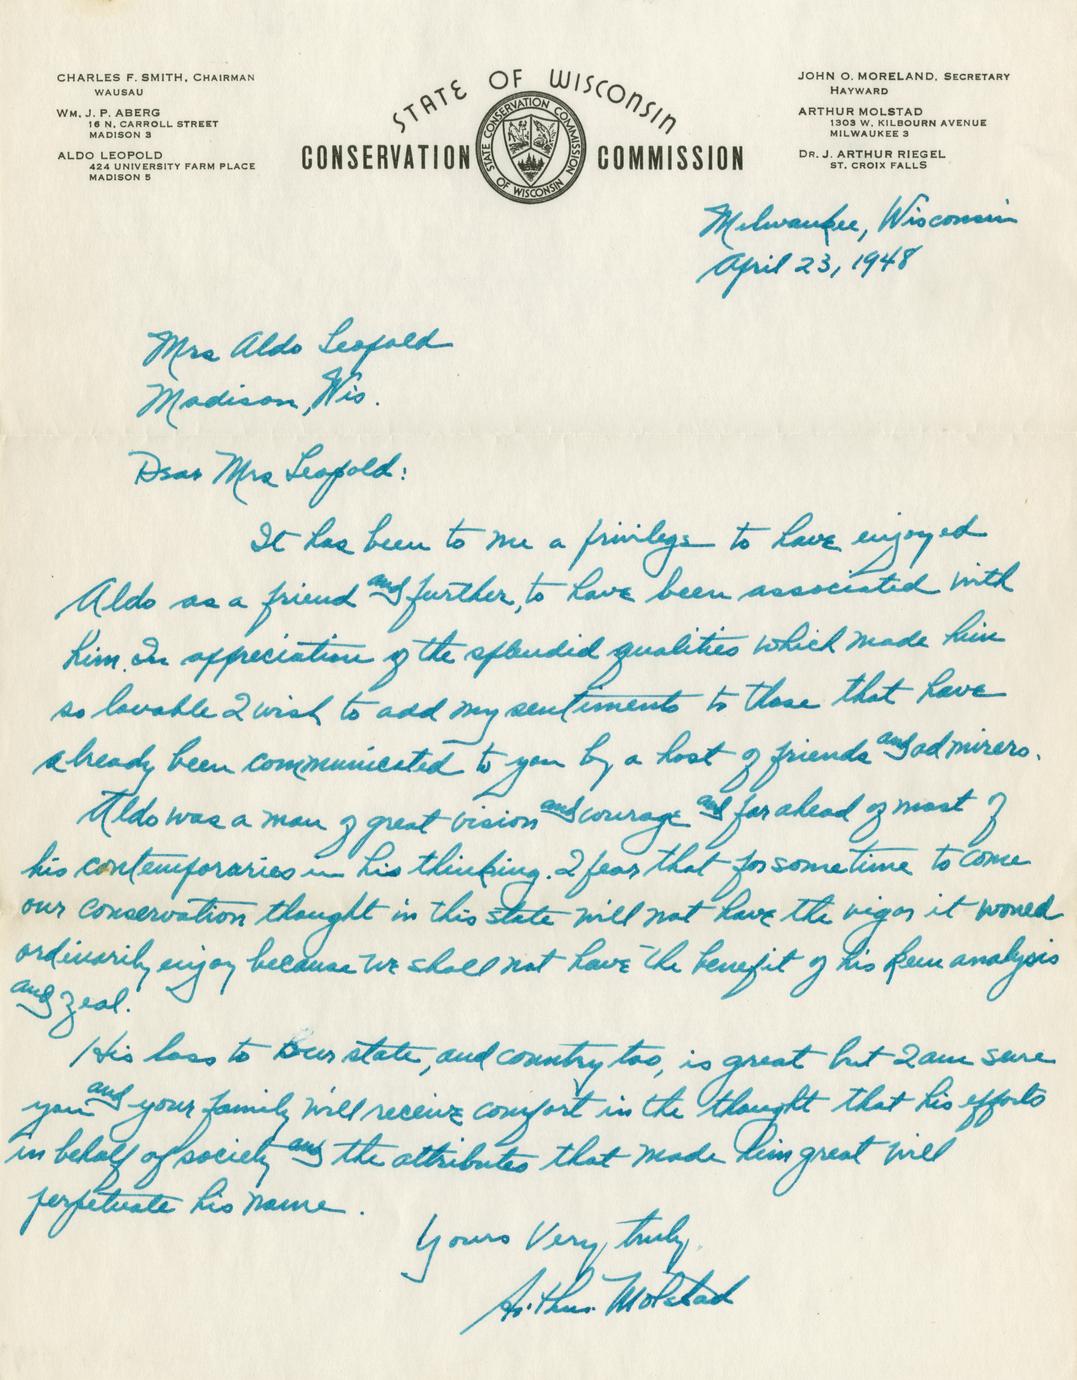 CHARLES F. SMITH, CHAIRMAN
WAUSAU
WM. J. P. ABERG
16 N. CARROLL STREET
MADISON 3
ALDO LEOPOLD
424 UNIVERSITY FARM PLACE
MADISON 5
STATE OF WISCONSIN
CONSERVATION COMMISSION
STATE CONSERVATION COMMISSION
OF WISCONSIN
JOHN O. MORELAND, SECRETARY
HAYWARD
ARTHUR MOLSTAD
1303 W. KILBOURN AVENUE
MILWAUKEE 3
DR. J. ARTHUR RIEGEL
ST. CROIX FALLS
Milwaukee, Wisconsin
April 23, 1948
Mrs Aldo Leopold
Madison, Wis.
Dear Mrs Leopold:
It has been to me a privilege to have enjoyed
Aldo as a friend and further, to have been associated with
him. In appreciation of the splendid qualities which made him
so lovable I wish to add my sentiments to those that have
already been communicated to you by a host of friends and admirers.
Aldo was a man of great vision and courage and far ahead of most of
his contemporaries in his thinking. I fear that for sometime to come
our conservation thought in this state will not have the vigor it would
ordinarily enjoy because we shall not have the benefit of his keen analysis
and zeal.
His loss to our state, and country too, is great but I am sure
you and your family will receive comfort in the thought that his efforts
in behalf of society and the attributes that made him great will
perpetuate his name.
Yours Very truly,
Arthur Molstad